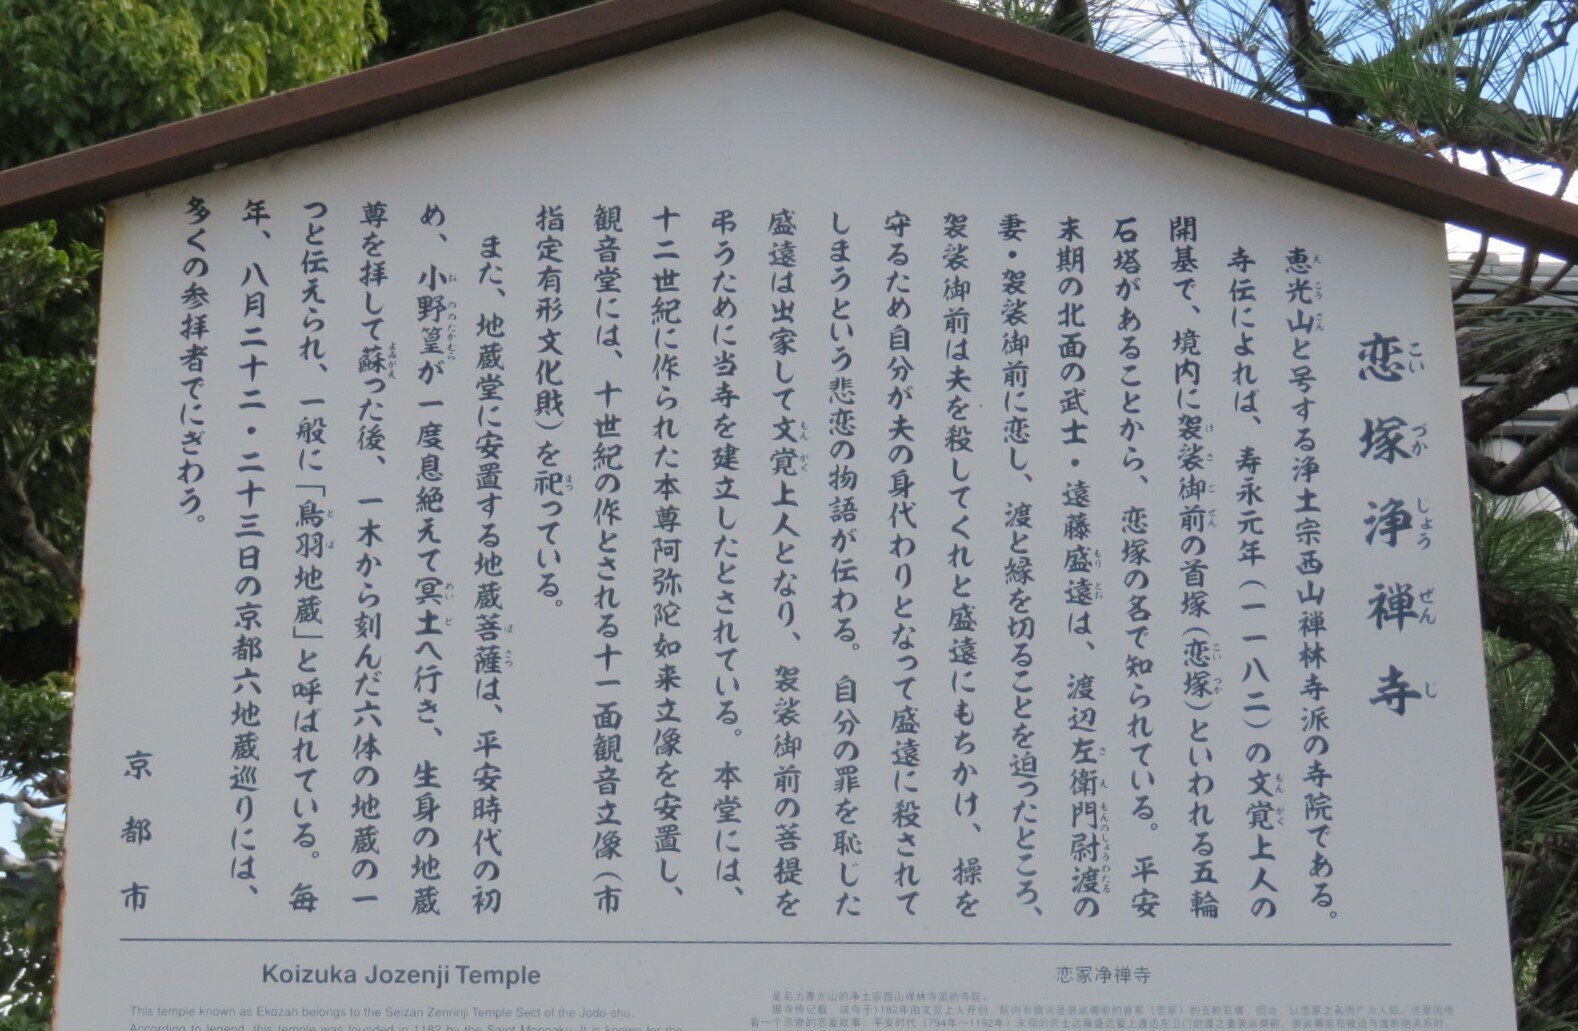 恋塚浄禅寺
恵光山と号する浄土宗西山禅林寺派の寺院である。
寺伝によれば、寿永元年（一一八二）の文覚上人の
開基で、境内に袈裟御前の首塚（恋塚）といわれる五輪
石塔があることから、恋塚の名で知られている。平安
末期の北面の武士・遠藤盛遠は、渡辺左衛門尉渡の
妻・袈裟御前に恋し、渡と縁を切ることを迫ったところ、
袈裟御前は夫を殺してくれと盛遠にもちかけ、操を
守るため自分が夫の身代わりとなって盛遠に殺されて
しまうという悲恋の物語が伝わる。自分の罪を恥じた
盛遠は出家して文覚上人となり、袈裟御前の菩提を
弔うために当寺を建立したとされている。本堂には、
十二世紀に作られた本尊阿弥陀如来立像を安置し、
観音堂には、十世紀の作とされる十一面観音立像（市
指定有形文化財）を祀っている。
また、地蔵堂に安置する地蔵菩薩は、平安時代の初
め、小野篁が一度息絶えて冥土へ行き、生身の地蔵
尊を拝して蘇った後、一木から刻んだ六体の地蔵の一
つと伝えられ、一般に「鳥羽地蔵」と呼ばれている。毎
年、八月二十二・二十三日の京都六地蔵巡りには、
多くの参拝者でにぎわう。
京都市
Koizuka Jozenji Temple
This temple known as Ekozan belongs to the Seizan Zenrinji Temple Sect of the Jodo-shu.
According to legend, this temple was founded in 1182 by the Saint Mongaku. It is known for the
恋冢净禅寺
是名为惠光山的净土宗西山禅林寺派的寺院。